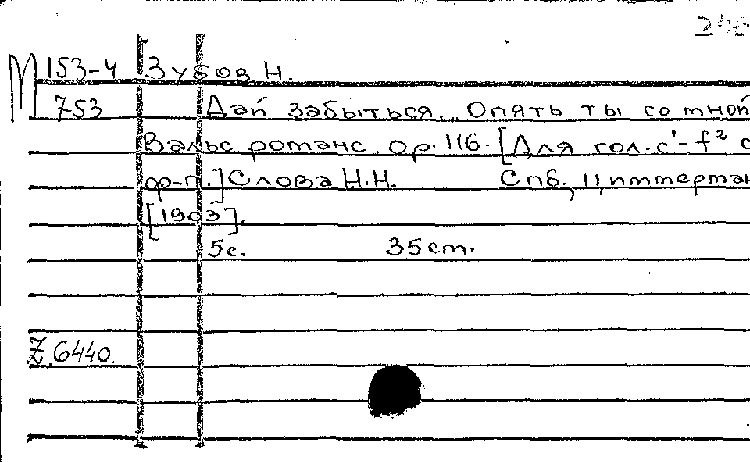 М 153-4 Зубов Н.
753 Дай забыться.. Опять ты со мной
Вальс романс. ор. 116. [Для гол. c'-f² с
ф-п.] Слова Н.Н. Спб., Циммерман
[1903].
5с. 35cm.
Z.6440.